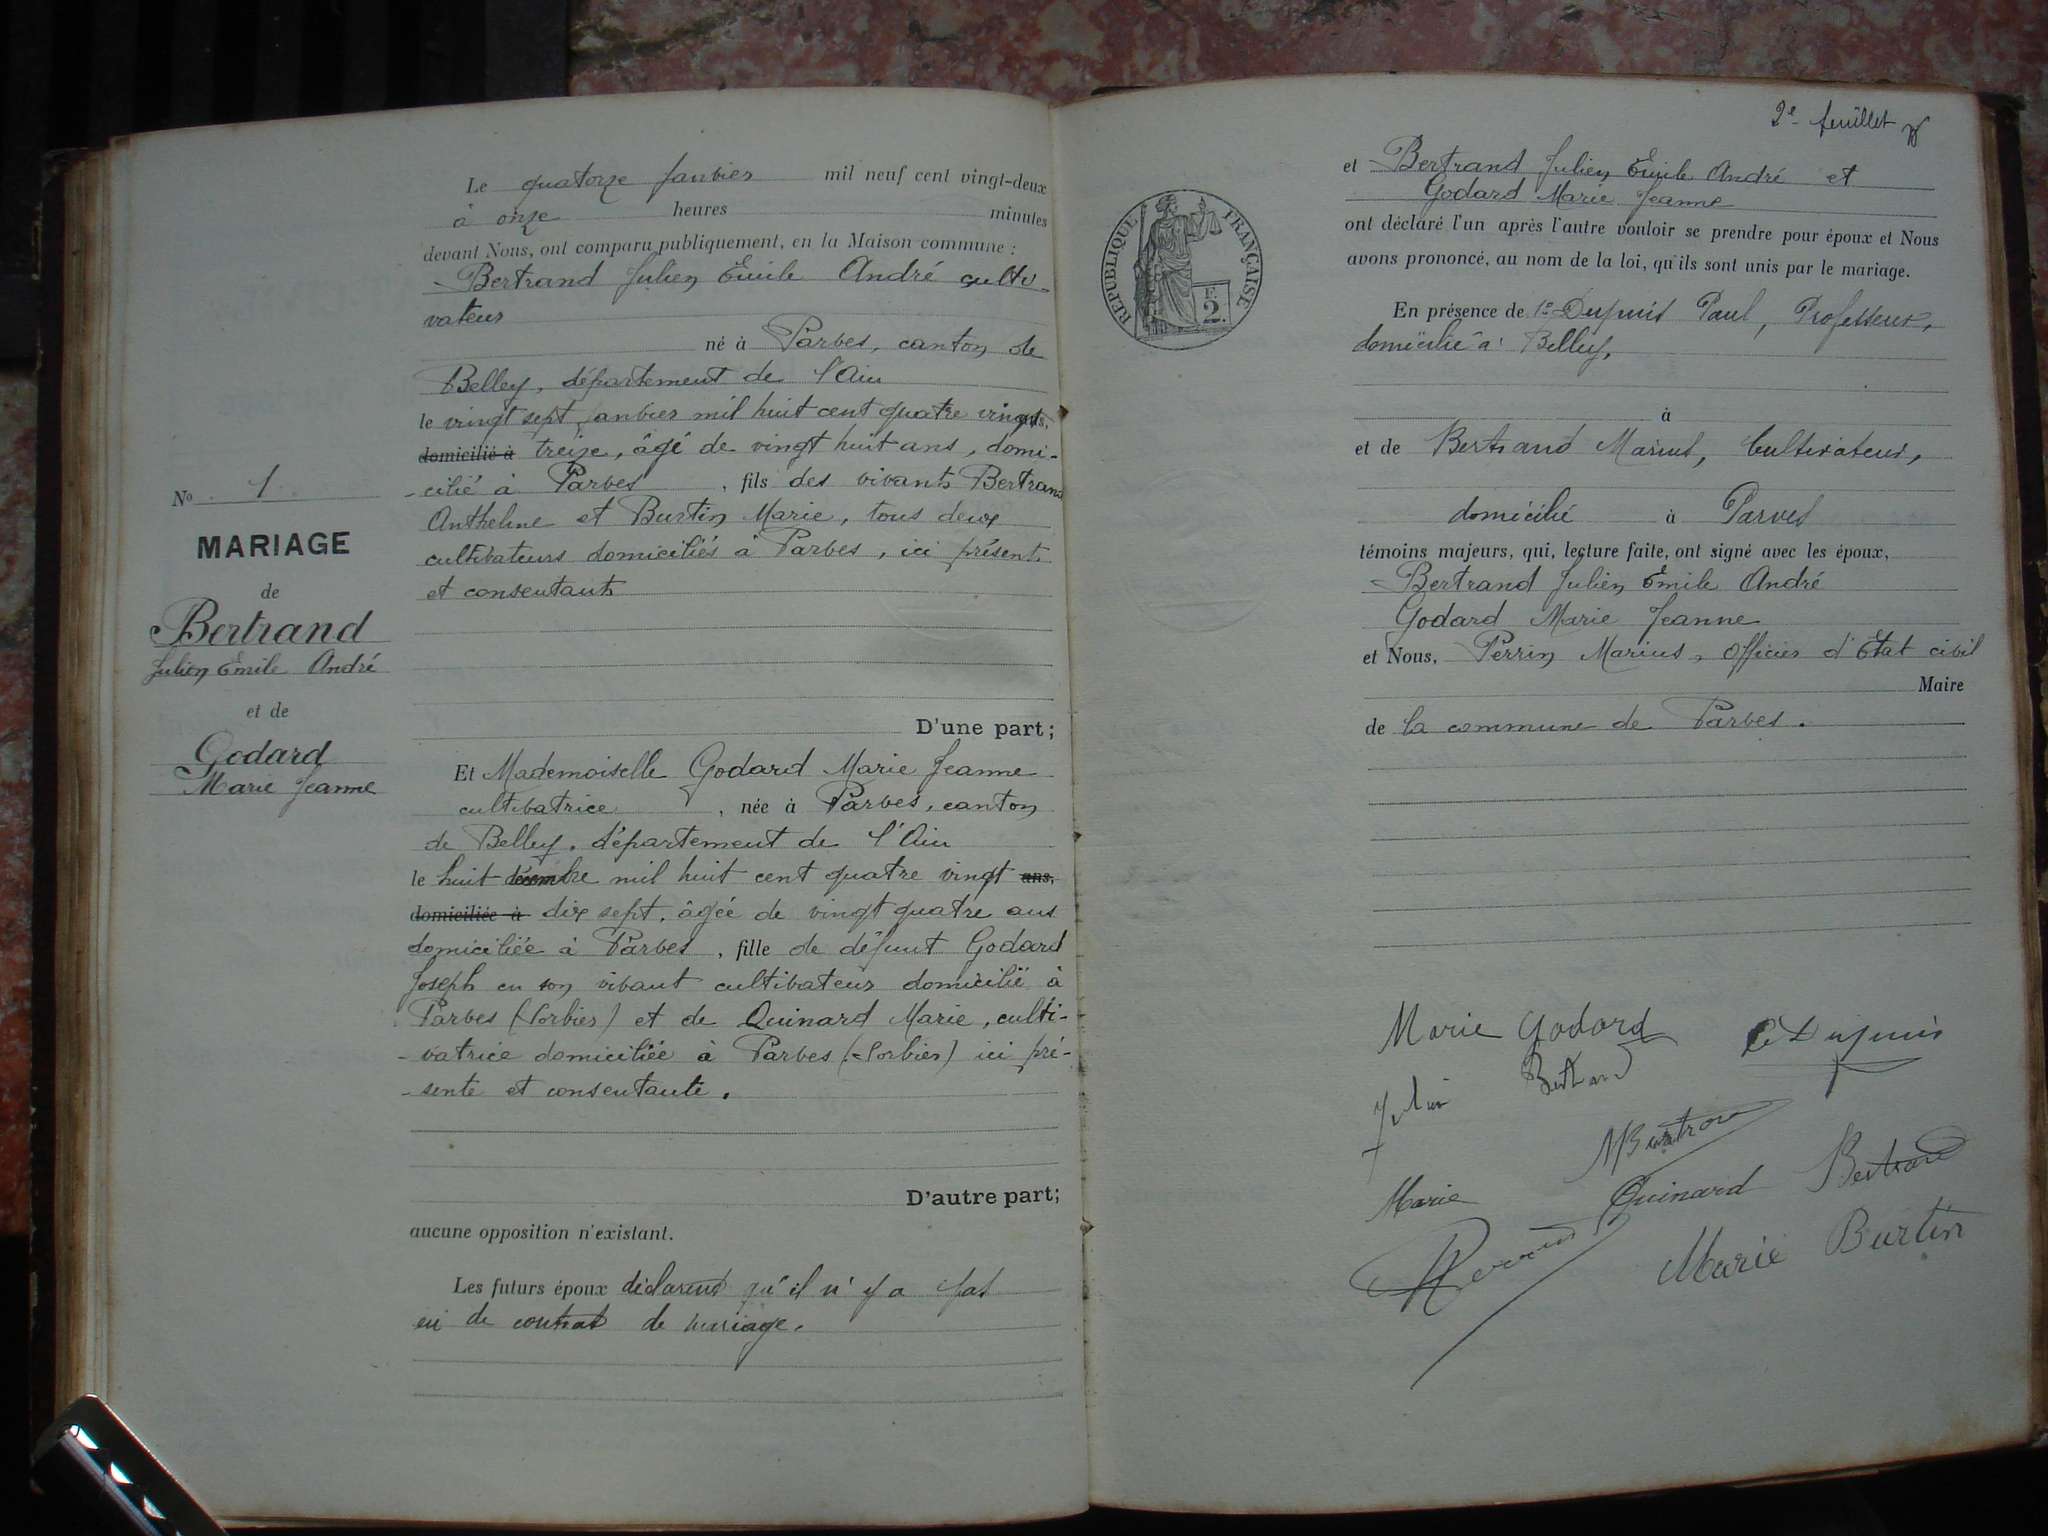 Le quatorze janvier mil neuf cent vingt-deux
à onze heures minutes
devant Nous, ont comparu publiquement, en la Maison commune :
Bertrand Julien Emile André culti-
vateur
né à Parves, canton de
Belley, département de l'Ain
le vingt sept janvier mil huit cent quatre vingt ans,
domicilié à treize, âgé de vingt huit ans, domi-
-cilié à Parves, fils des vivants Bertrand
Anthelme et Burtin Marie, tous deux
cultivateurs domiciliés à Parves, ici présents
et consentants
D'une part;
Et Mademoiselle Godard Marie Jeanne
cultivatrice, née à Parves, canton
de Belley, département de l'Ain
le huit décembre mil huit cent quatre vingt ans,
domiciliée à dix sept, âgée de vingt quatre ans
domiciliée à Parves, fille de défunt Godard
Joseph en son vivant cultivateur domicilié à
Parves (Sorbier) et de Quinard Marie, culti-
-vatrice domiciliée à Parves (Sorbier) ici pré-
-sente et consentante.
D'autre part;
aucune opposition n'existant.
Les futurs époux déclarent qu'il n'y a pas
eu de contrat de mariage.
No 1
MARIAGE
de
Bertrand
Julien Emile André
et de
Godard
Marie Jeanne
2e feuillet
REPUBLIQUE FRANÇAISE
F.
2.
et Bertrand Julien Emile André et
Godard Marie Jeanne
ont déclaré l'un après l'autre vouloir se prendre pour époux et Nous
avons prononcé, au nom de la loi, qu'ils sont unis par le mariage.
En présence de 1º Dupuis Paul, Professeur,
domicilié à Belley,
à
et de Bertrand Marius, Cultivateur,
domicilié à Parves
témoins majeurs, qui, lecture faite, ont signé avec les époux,
Bertrand Julien Emile André
Godard Marie Jeanne
et Nous, Perrin Marius, officier d'Etat civil
Maire
de la commune de Parves.
Marie Godard
Dupuis
Julien Bertrand
Marie Quinard
Bertrand
Marie Burtin